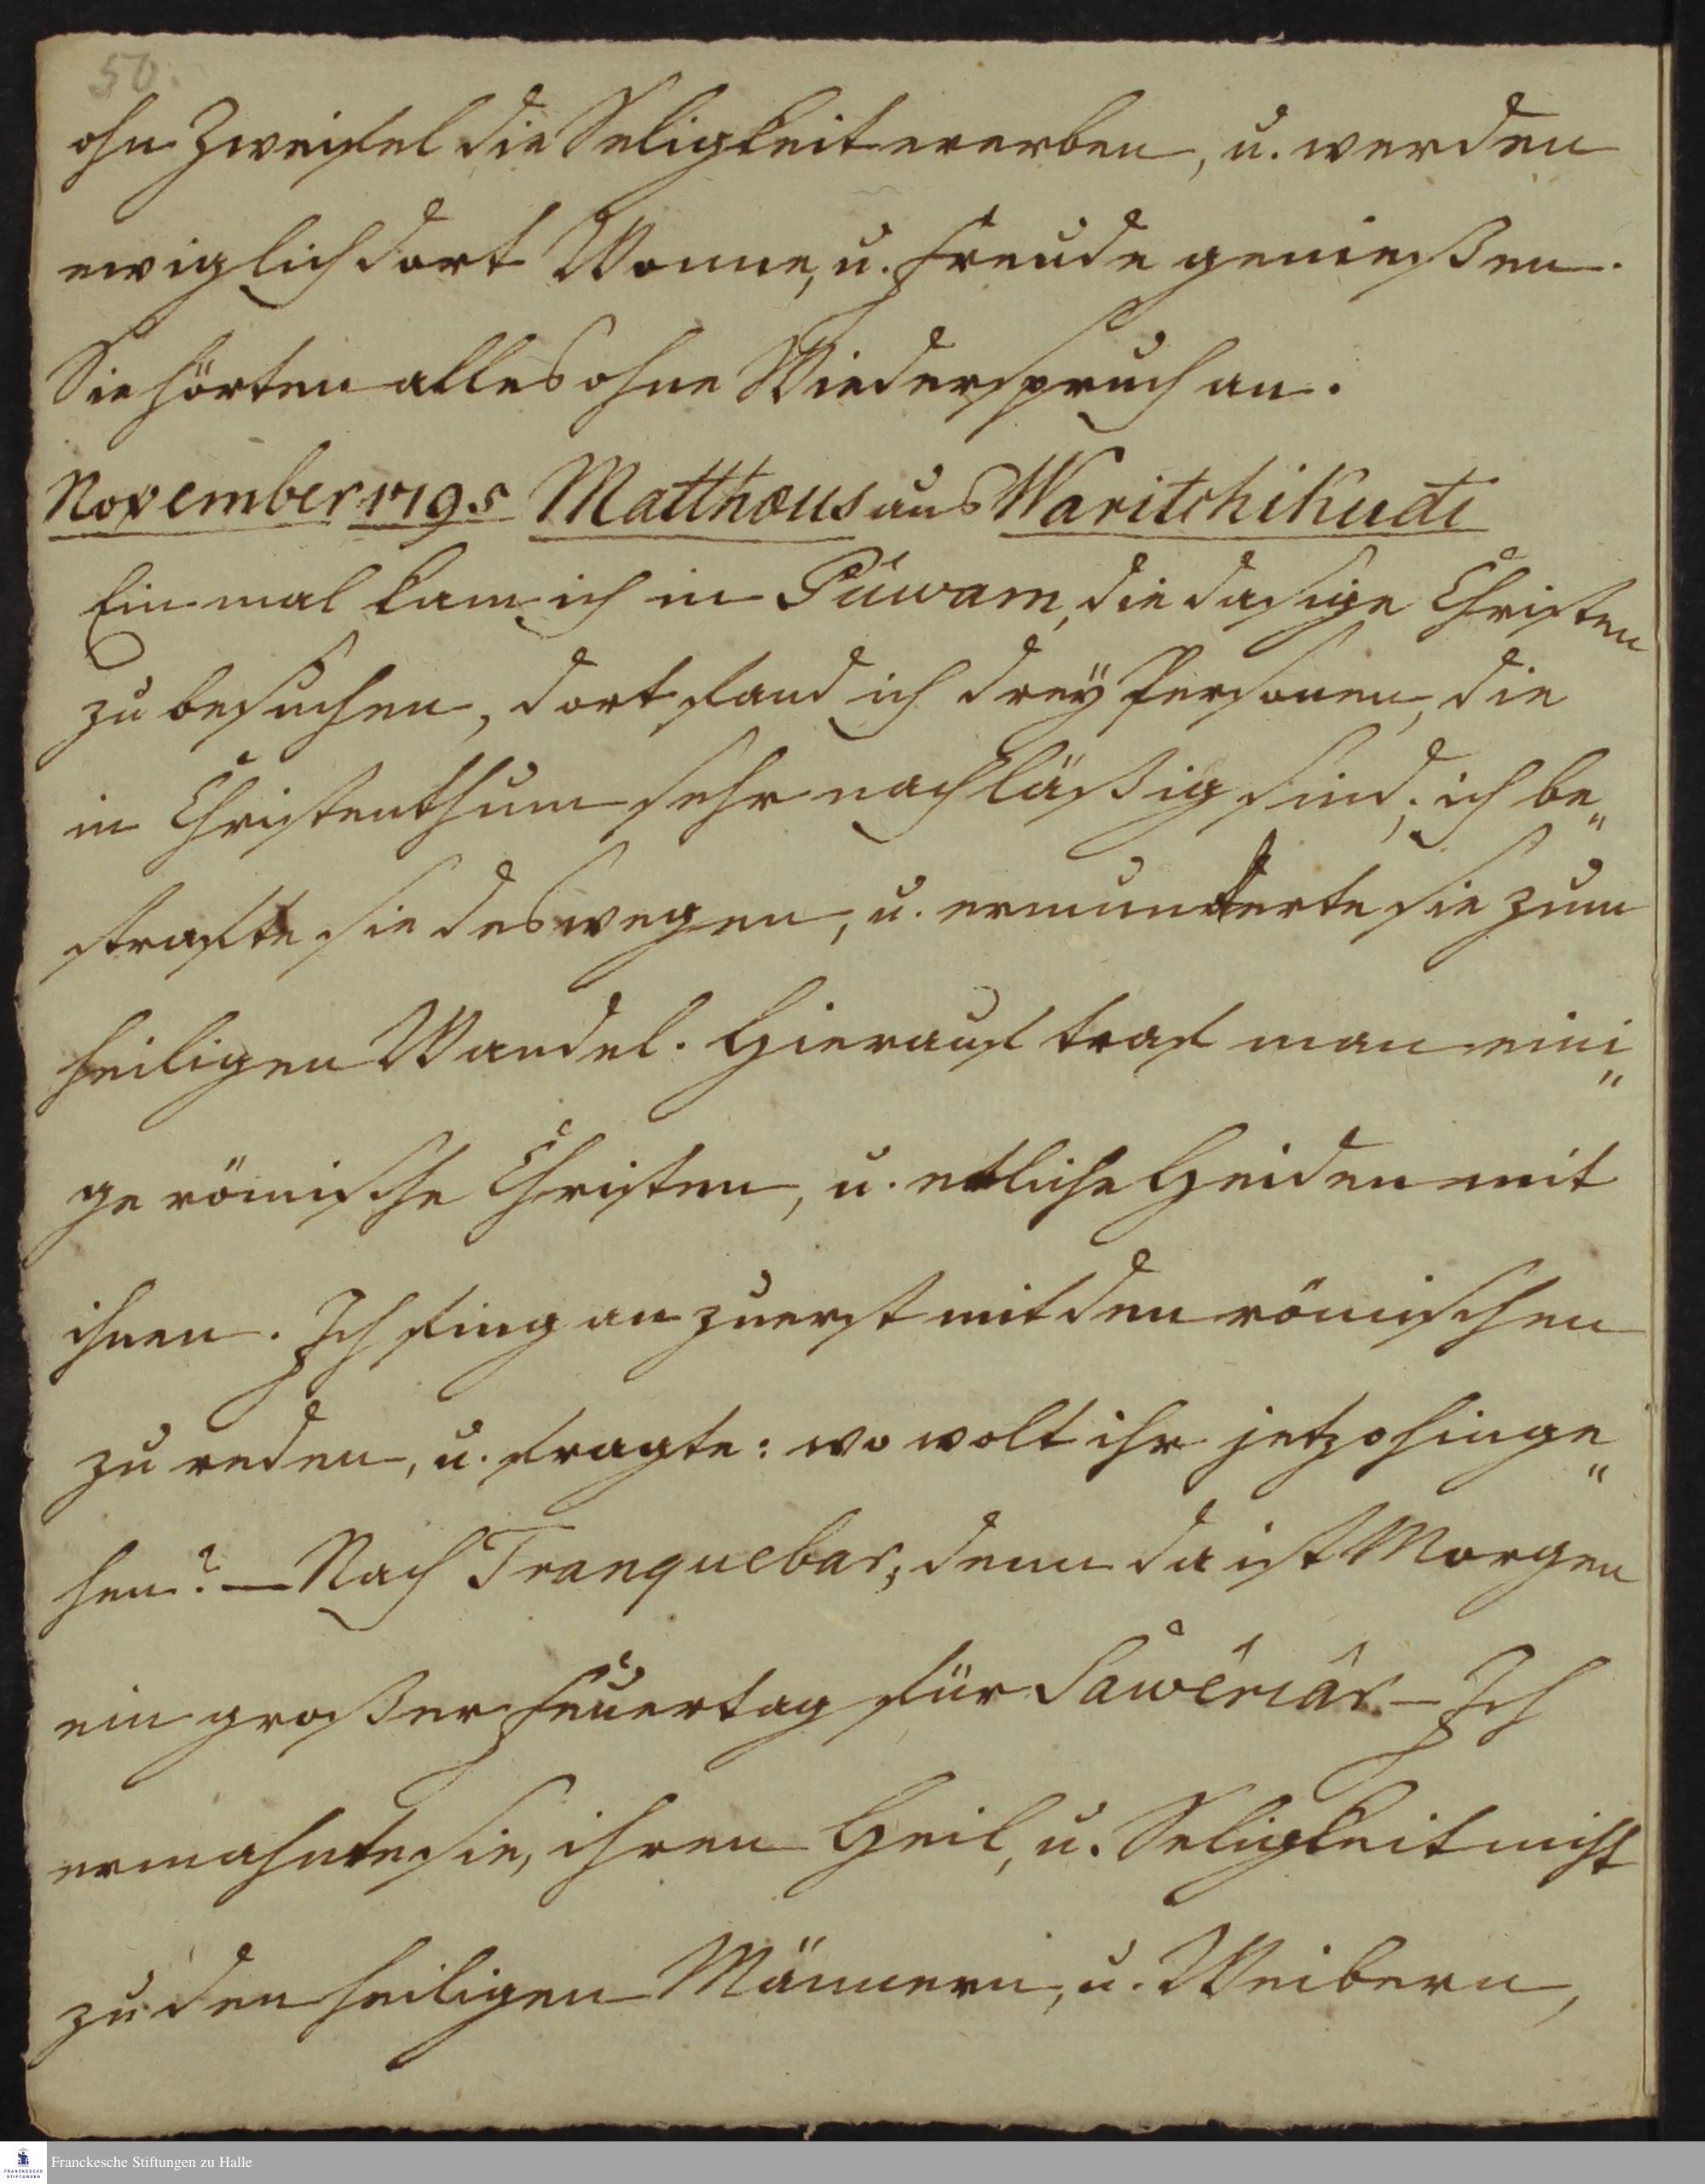 50.
ohn Zweifel die Seligkeit ererben, u. werden
ewiglich dort Wonne, u. Freude genießen.
Sie hörten alles ohne Wiederspruch an.
November 1795 Matthæus aus Waritchikudi
Einmal kam ich in Púwam, die dasige Christen
zu besuchen, dort fand ich drey Personen, die
in Christenthum sehr nachläßig sind; ich be„
strafte sie deswegen, u. ermunterte sie zum
heiligen Wandel. Hierauf traf man eini„
ge römische Christen, u. etliche Heiden mit
ihnen. Ich fing an zuerst mit den römischen
zu reden, u. fragte: wo wolt ihr jetzo hinge„
hen? — Nach Tranquebar; denn da ist Morgen
ein großer Feuertag für Sawêriâr — Ich
ermahnte sie, ihren Heil, u. Seligkeit nicht
zu den heiligen Männern, u. Weibern,
FRANCKESCHE
STIFTUNGEN
Franckesche Stiftungen zu Halle